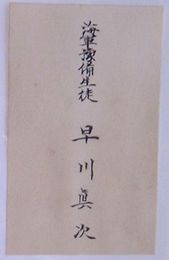 海軍豫備生徒
早川眞次